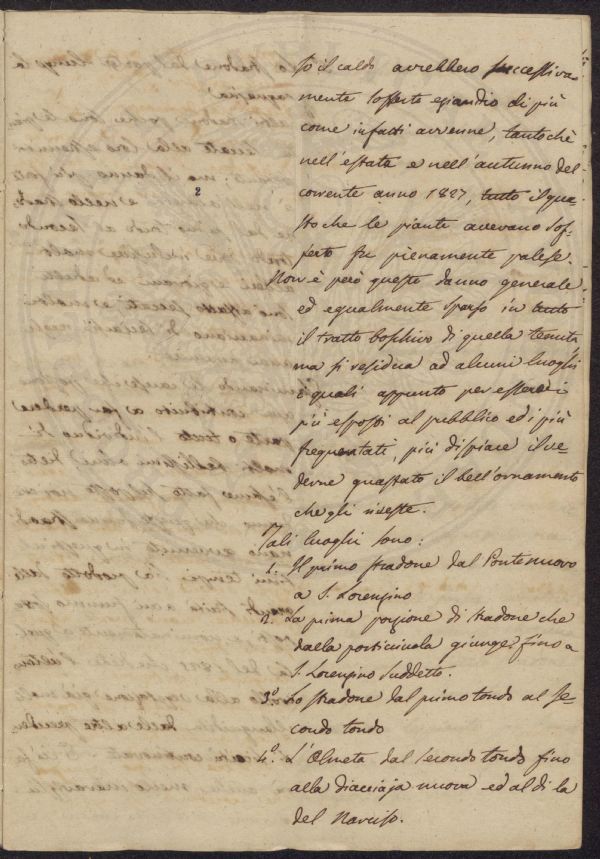 so il caldo avrebbero successiva-
mente sofferto eziandio di più
come infatti avvenne, tantochè
nell'estate e nell'autunno del
corrente anno 1827, tutto il gua-
sto che le piante avevano sof-
ferto fu pienamente palese.
Non è però questo danno generale
ed egualmente sparso in tutto
il tratto boschivo di quella tenuta
ma si residua ad alcuni luoghi
i quali appunto per essere i
più esposti al pubblico ed i più
frequentati, più dispiace il ve-
derne guastato il bell'ornamento
che gli riveste.
Tali luoghi sono:
1. Il primo stradone dal Ponte nuovo
a S. Lorenzino
2. La prima porzione di stradone che
dalla porticciuola giunge fino a
S. Lorenzino suddetto.
3.º Lo stradone dal primo tondo al se-
condo tondo
4.º L'Olmeta dal secondo tondo fino
alla diacciaja nuova ed al di la
del Narciso.
2